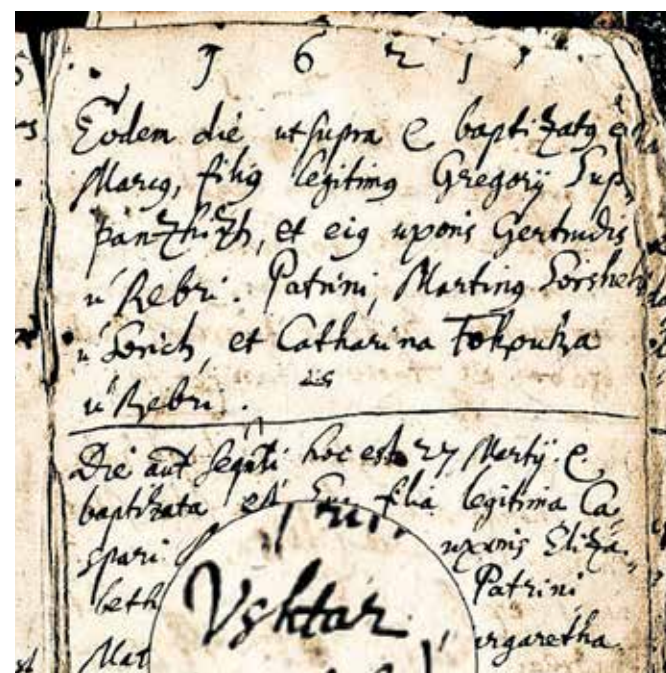 1621.
Eodem die ut supra e baptizatꝯ e
Marcꝯ, filiꝯ legitimꝯ Gregorÿ Sup„
panzhizh, et eiꝯ uxoris Gertrudis
u'Rebri. Patrini, Martinꝯ
u' Gorich, et Catharina
u' Rebri.
Die aut seqṅti hoc est 27 Martÿ. e
baptizata est filia legitima Ca
spari uxoris Eliza„
beth Patrini
Mat argaretha
Vshtar